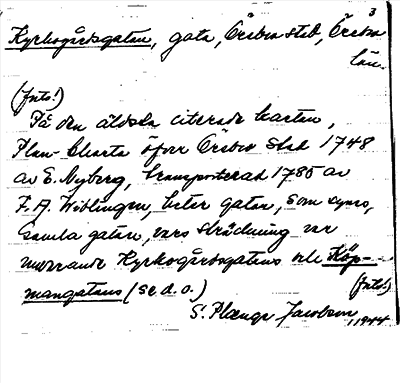 3
Kyrkogårdsgatan, gata, Örebro stad, Örebro
län.
(Foto!)
På den äldsta citerade kartan,
Plan-Charta öfver Örebro Stad 1748
av E. Nyberg, transporterad 1785 av
F. A. Wiblingen, heter gatan, som synes,
Gamla gatan, vars sträckning var
nuvarande Kyrkogårdsgatans och Köp-
mangatans (se d. o.) (Foto!)
S. Plænge Jacobson, 1944